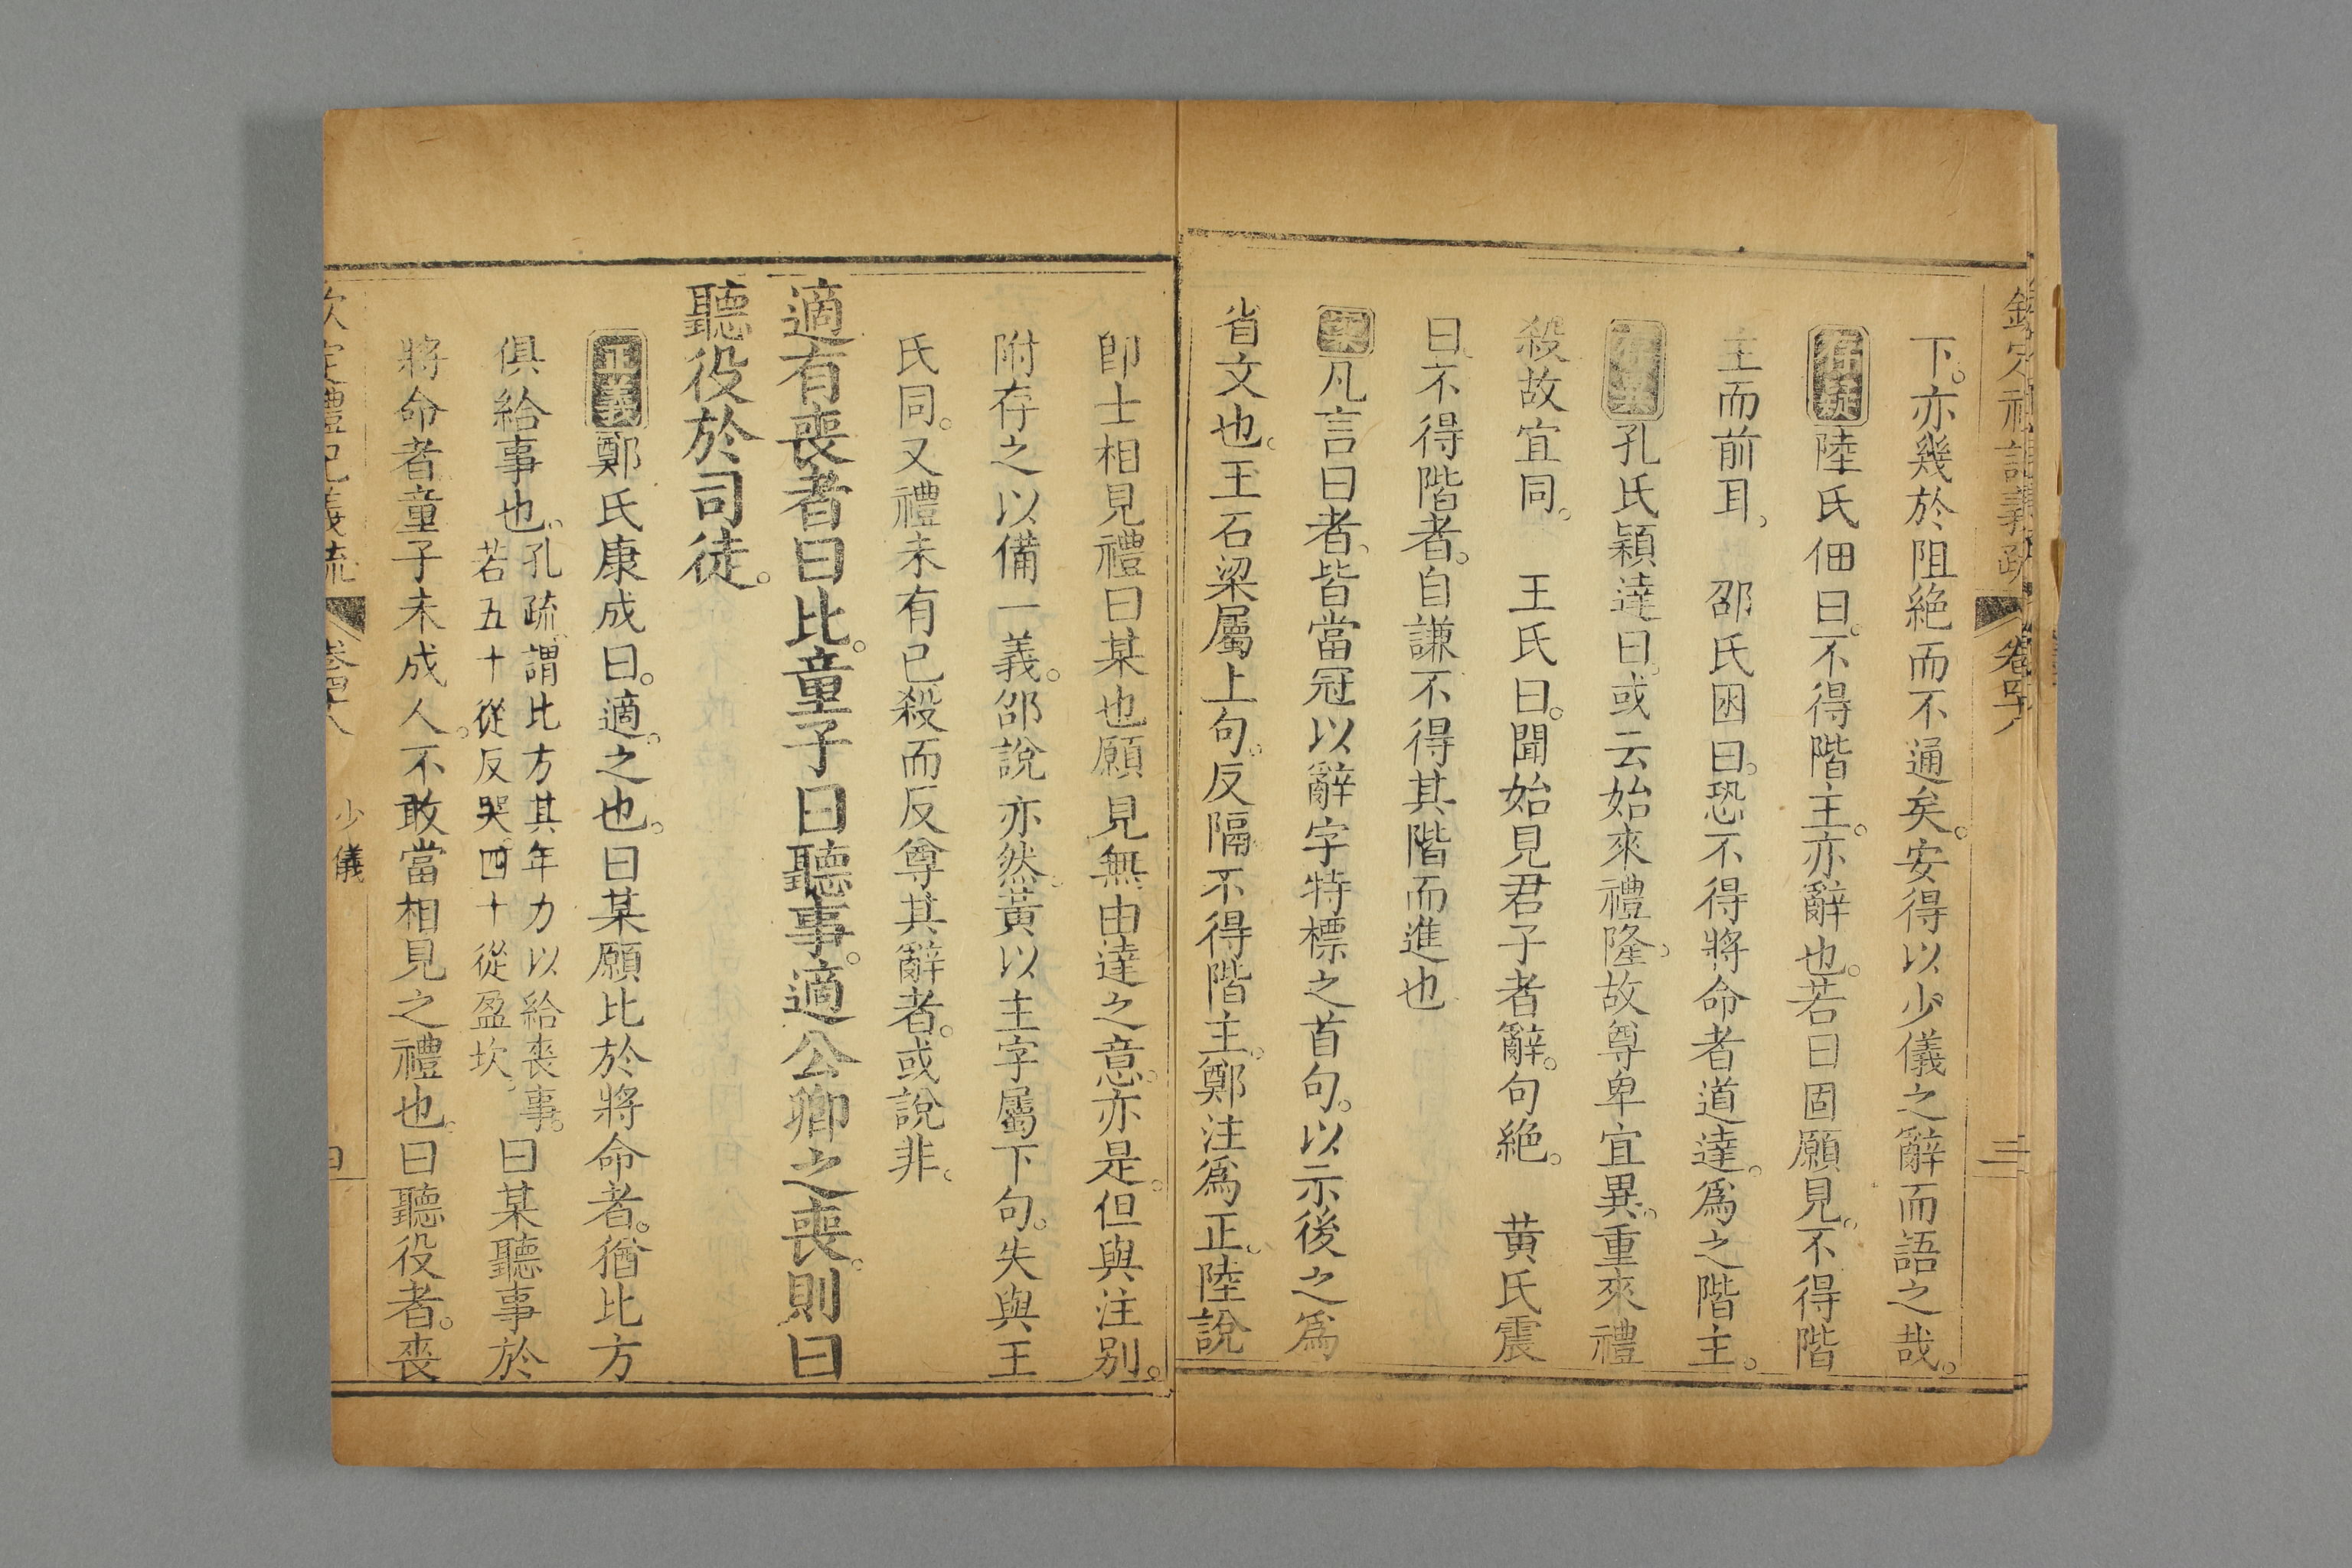 欽定禮記義疏 卷四十八 三
下。亦幾於阻絕而不通矣。安得以少儀之辭而語之哉。
存疑陸氏佃曰。不得階主。亦辭也。若曰固願見。不得階
主而前耳。 邵氏囦曰。恐不得將命者道達。爲之階主。
存異孔氏穎達曰。或云始來禮隆。故尊卑宜異。重來禮
殺故宜同。 王氏曰。聞始見君子者辭。句絕。 黄氏震
曰。不得階者。自謙不得其階而進也
案凡言曰者。皆當冠以辭字特標之首句。以示後之爲
省文也。王石梁屬上句。反隔不得階主。鄭注爲正。陸說
卽士相見禮曰某也願見無由達之意。亦是。但與注别。
附存之以備一義。邵說亦然。黃以主字屬下句。失與王
氏同。又禮未有已殺而反尊其辭者。或說非。
適有喪者曰比。童子曰聽事。適公卿之喪。則曰
聽役於司徒。
正義鄭氏康成曰。適。之也。曰某願比於將命者。猶比方
俱給事也。孔疏。謂比方其年力以給喪事。若五十從反哭。四十從盈坎。曰某聽事於
將命者童子未成人。不敢當相見之禮也。曰聽役者。喪
欽定禮記義疏 卷四十八 少儀